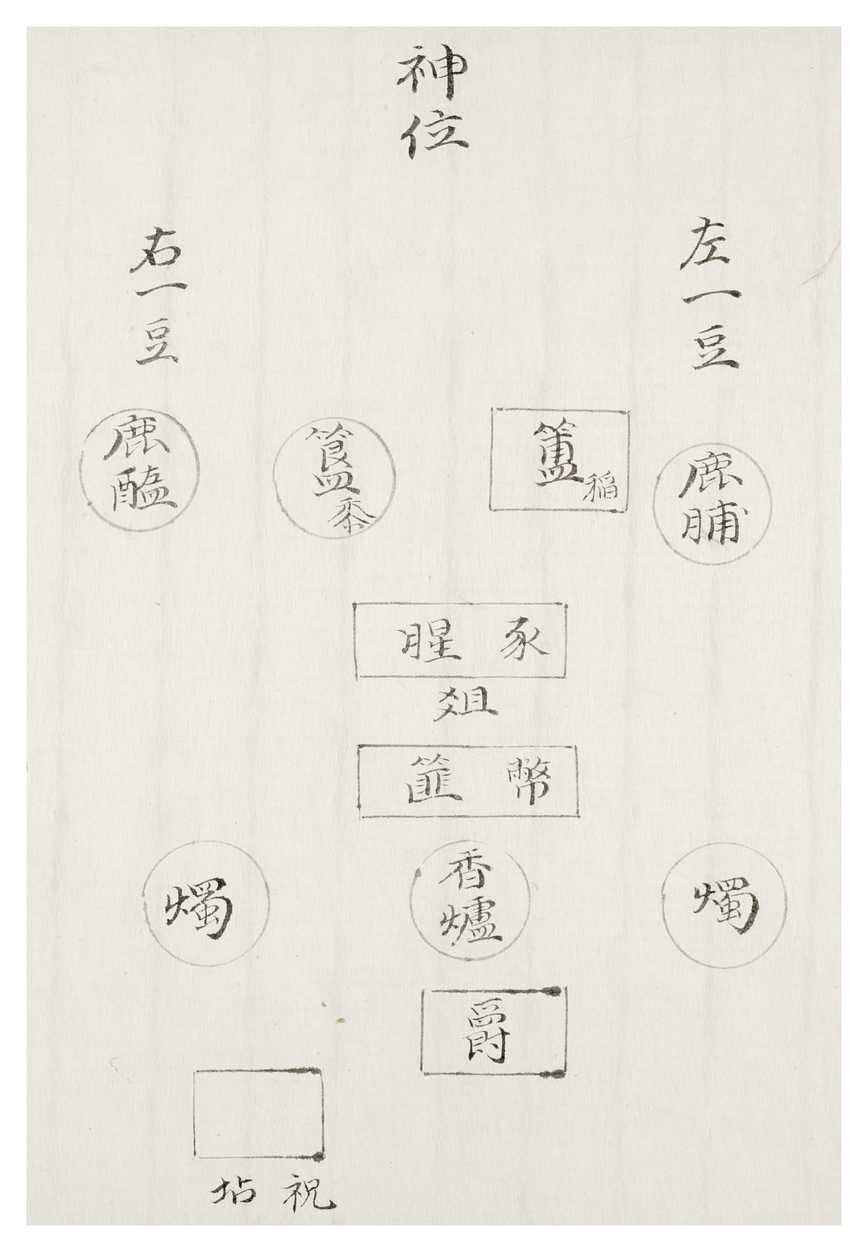 神位
左一豆
右一豆
鹿脯
簠稲
簋黍
鹿醢
豕腥
俎
幣篚
燭
香爐
燭
爵
祝坫